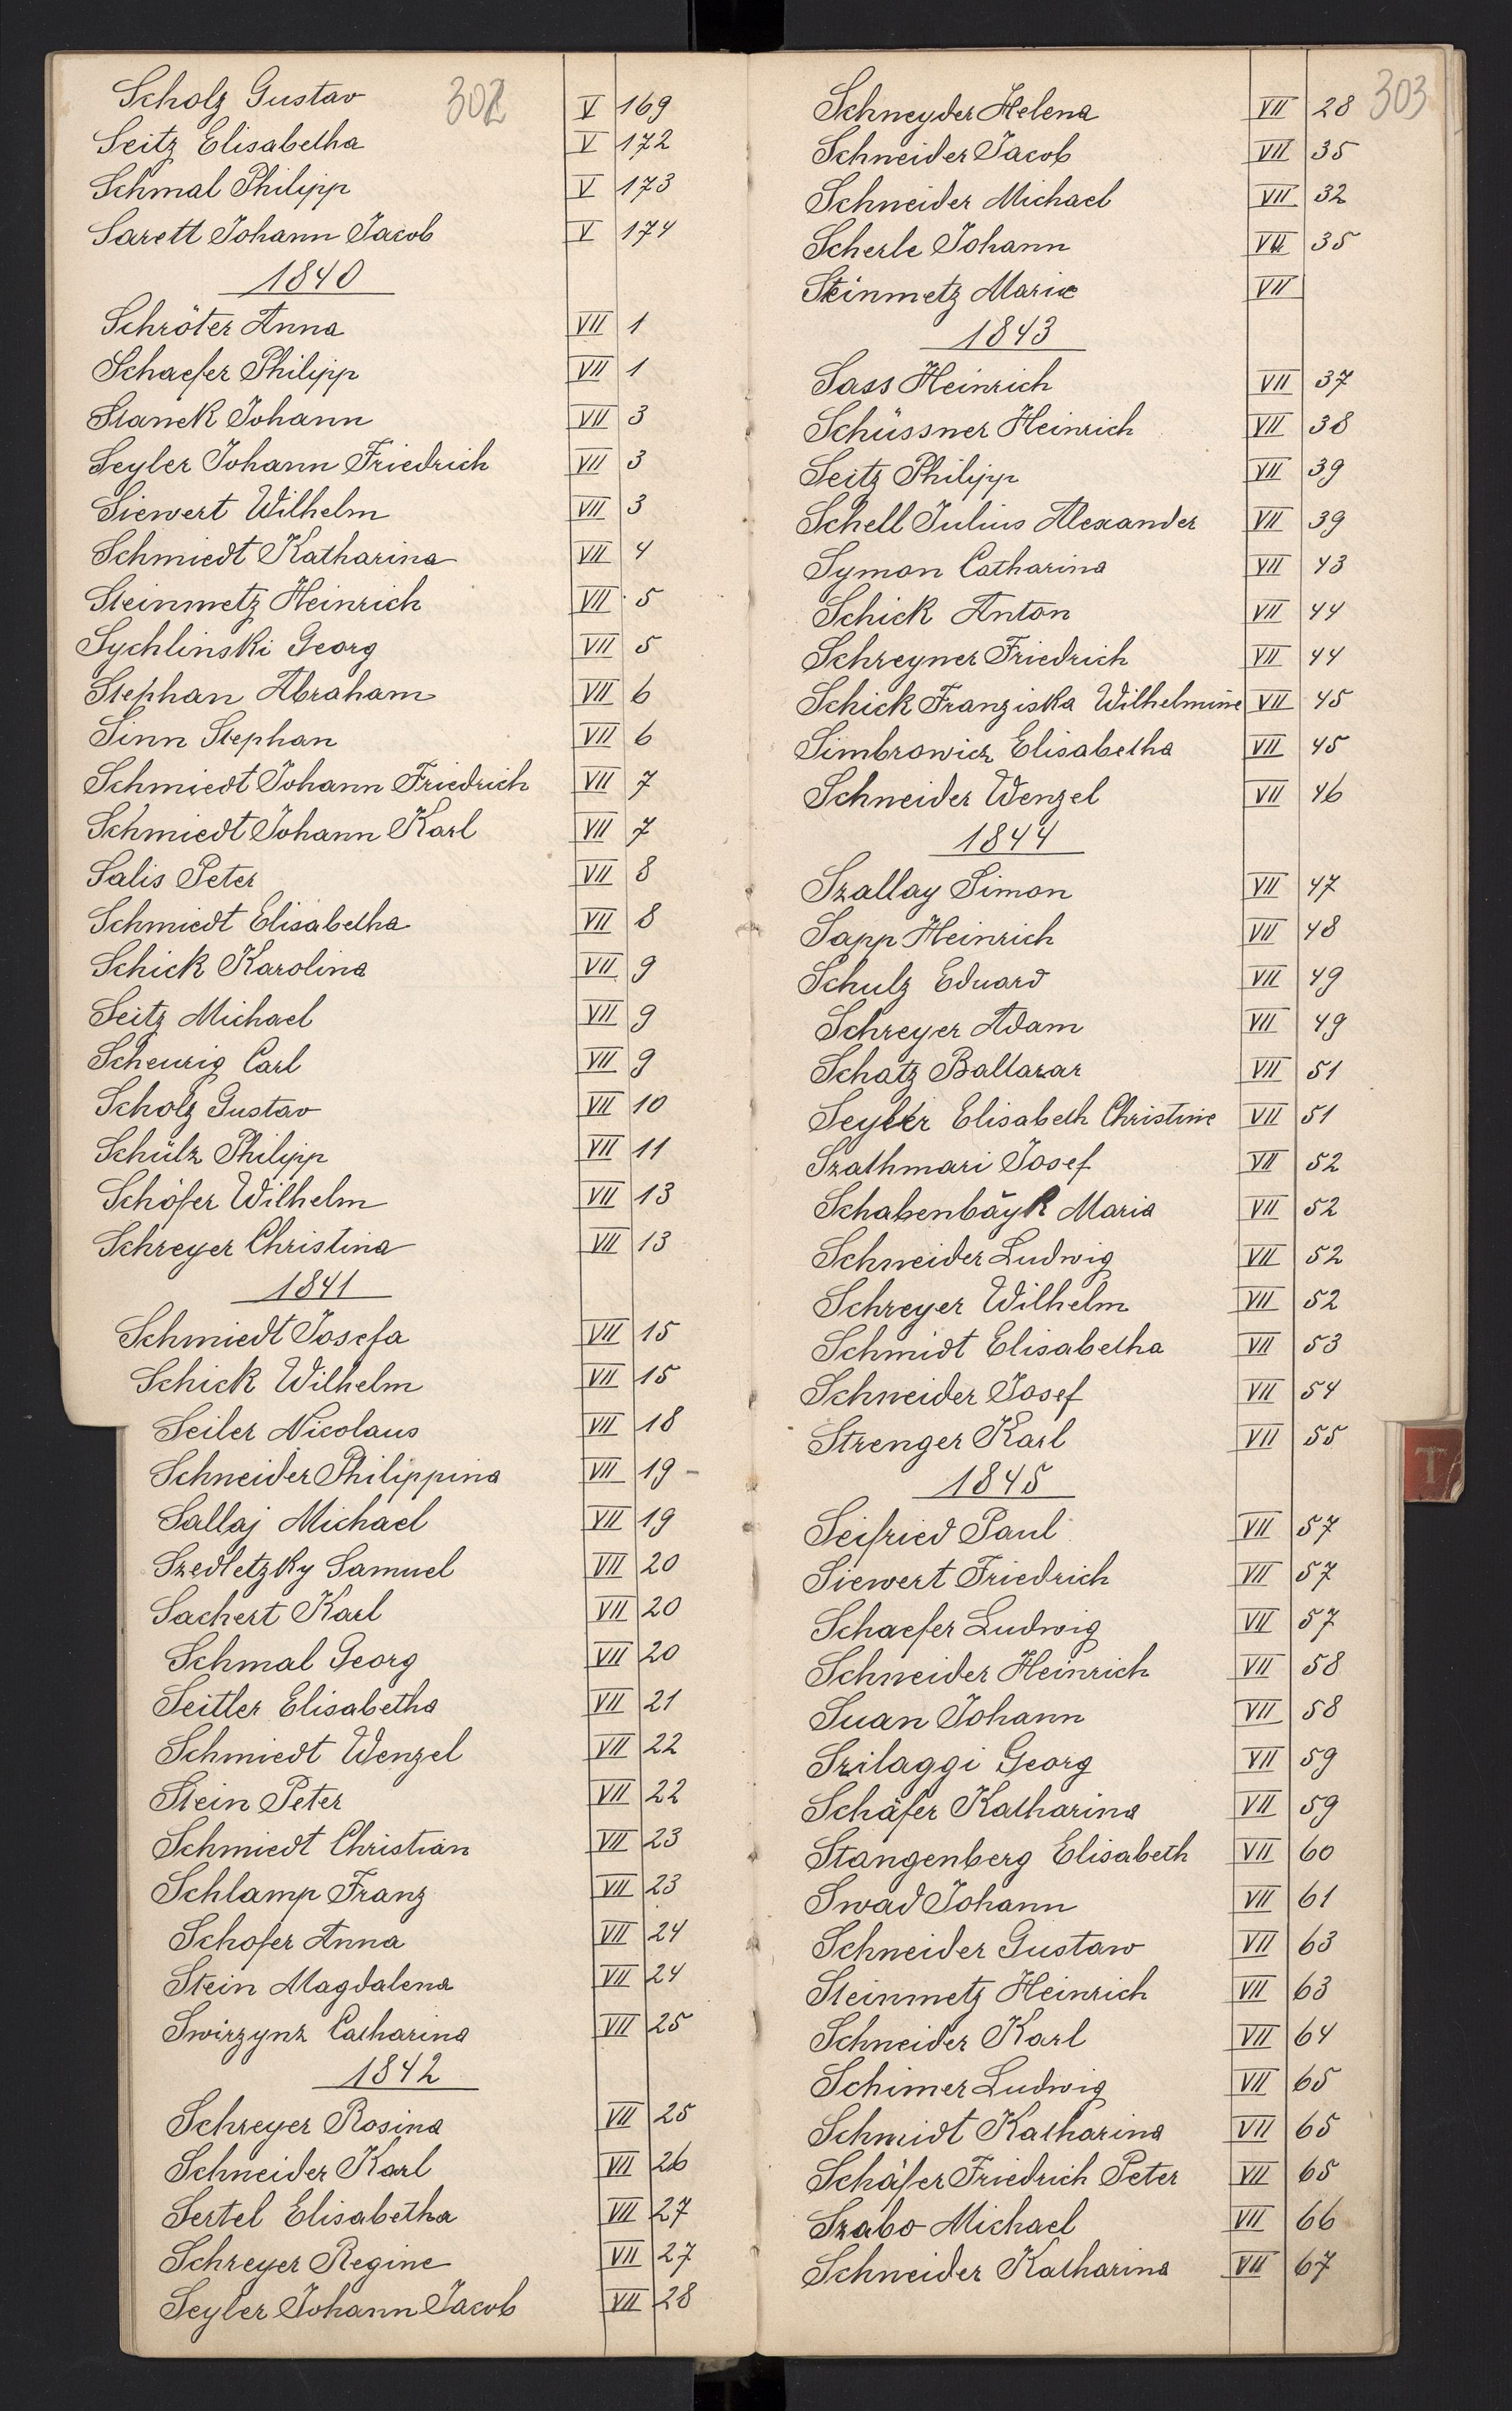 302
Scholz Gustav V 169
Seitz Elisabetha V 172
Schmal Philipp V 173
Sarett Johann Jacob V 174
1840
Schröter Anna VII 1
Schaefer Philipp VII 1
Stanek Johann VII 3
Seyler Johann Friedrich VII 3
Siewert Wilhelm VII 3
Schmiedt Katharina VII 4
Steinmetz Heinrich VII 5
Sychlinski Georg VII 5
Stephan Abraham VII 6
Sinn Stephan VII 6
Schmiedt Johann Friedrich VII 7
Schmiedt Johann Karl VII 7
Salis Peter VII 8
Schmiedt Elisabetha VII 8
Schick Karolina VII 9
Seitz Michael VII 9
Scheurig Carl VII 9
Scholz Gustav VII 10
Schülz Philipp VII 11
Schöfer Wilhelm VII 13
Schreyer Christina VII 13
1841
Schmiedt Josefa VII 15
Schick Wilhelm VII 15
Seiler Nicolaus VII 18
Schneider Philippina VII 19 -
Sallaj Michael VII 19
Szedletzky Samuel VII 20
Sachert Karl VII 20
Schmal Georg VII 20
Seitler Elisabetha VII 21
Schmiedt Wenzel VII 22
Stein Peter VII 22
Schmiedt Christian VII 23
Schlamp Franz VII 23
Schofer Anna VII 24
Stein Magdalena VII 24
Swirzynz Catharina VII 25
1842
Schreyer Rosina VII 25
Schneider Karl VII 26
Sertel Elisabetha VII 27
Schreyer Regine VII 27
Seyler Johann Jacob VII 28
303
Schneyder Helena VII 28
Schneider Jacob VII 35
Schneider Michael VII 32
Scherle Johann VII 35
Steinmetz Marie VII
1843
Sass Heinrich VII 37
Schüssner Heinrich VII 38
Seitz Philipp VII 39
Schell Julius Alexander VII 39
Symon Catharina VII 43
Schick Anton VII 44
Schreyner Friedrich VII 44
Schick Franziska Wilhelmine VII 45
Simbrowicz Elisabetha VII 45
Schneider Wenzel VII 46
1844
Szallay Simon VII 47
Sapp Heinrich VII 48
Schulz Eduard VII 49
Schreyer Adam VII 49
Schatz Baltazar VII 51
Seyler Elisabeth Christine VII 51
Szathmari Josef VII 52
Schabenbäyk Maria VII 52
Schneider Ludwig VII 52
Schreyer Wilhelm VII 52
Schmidt Elisabetha VII 53
Schneider Josef VII 54
Strenger Karl VII 55
T
1845
Seifried Paul VII 57
Siewert Friedrich VII 57
Schaefer Ludwig VII 57
Schneider Heinrich VII 58
Suan Johann VII 58
Szilaggi Georg VII 59
Schäfer Katharina VII 59
Stangenberg Elisabeth VII 60
Swad Johann VII 61
Schneider Gustaw VII 63
Steinmetz Heinrich VII 63
Schneider Karl VII 64
Schimer Ludwig VII 65
Schmidt Katharina VII 65
Schäfer Friedrich Peter VII 65
Szabo Michael VII 66
Schneider Katharina VII 67